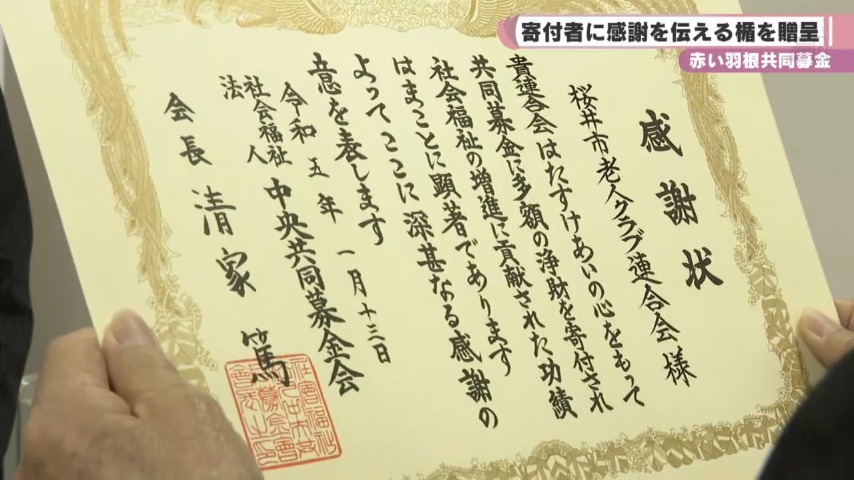 寄付者に感謝を伝える楯を贈呈
赤い羽根共同募金
感謝状
桜井市老人クラブ連合会様
貴連合会はたすけあいの心をもって
共同募金に多額の浄財を寄付され
社会福祉の増進に貢献された功績
はまことに顕著であります
よってここに深甚なる感謝の
意を表します
令和五年一月十三日
社会福祉法人 中央共同募金会
会長 清家 篤